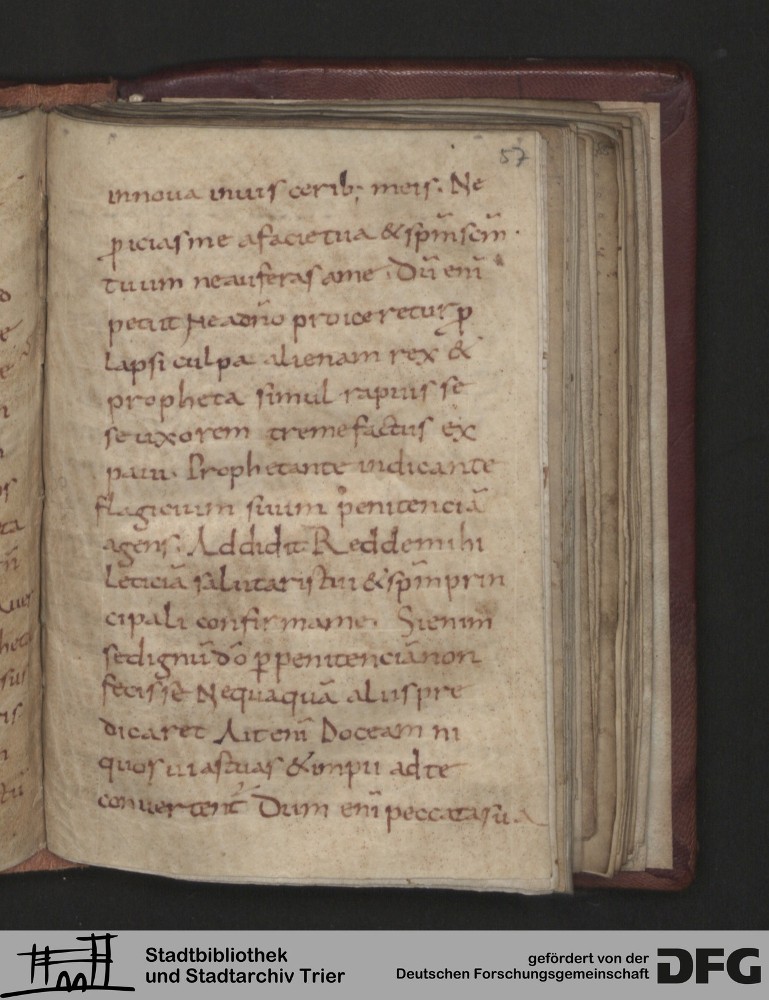 57
innoua inuisceribꝫ meis. Ne
ꝓiciasme afacietua &sp̄m sc̄m
tuum neauferasame. Dū enī
petiit Ne adn̄o proiceretur ꝓ
lapsi culpa alienam rex &
propheta simul rapuisse
se uxorem tremefactus ex
pauit. Prophetante indicante
flagicium suum penitenciā
agens. Addidit. Redde mihi
leticiā salutaristui &sp̄m prin
cipali confirmame. Sienim
sedignū dō ꝑpenitenciā non
fecisse Nequaquā aliis pre
dicaret Aitenī Doceam ini
quos uiastuas &impii adte
conuertent̄ Dum enī peccatasua
Stadtbibliothek
und Stadtarchiv Trier
gefördert von der
Deutschen Forschungsgemeinschaft
DFG